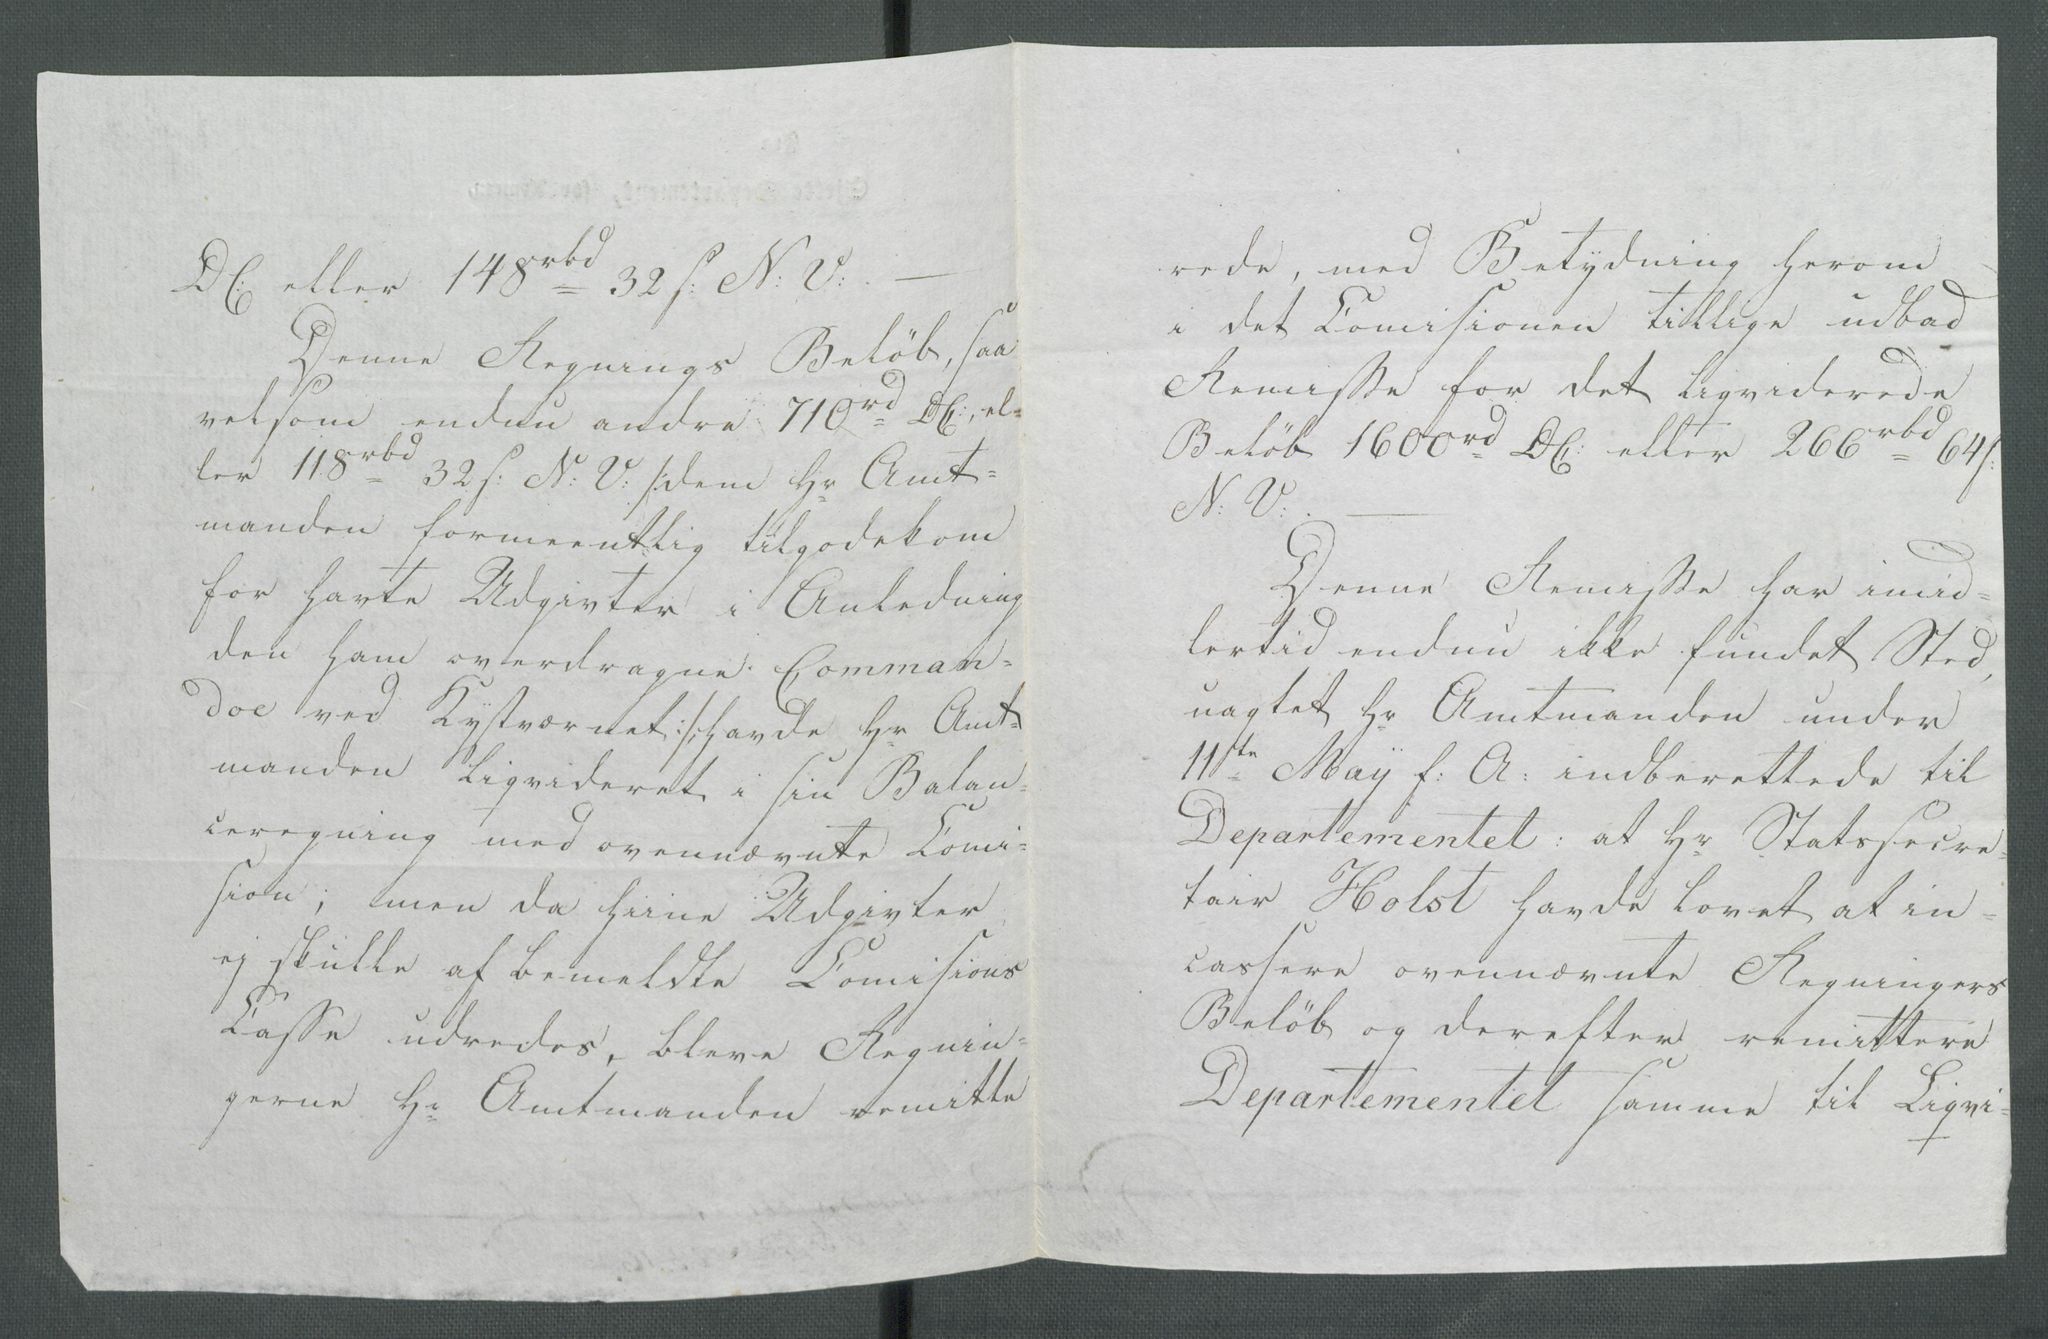 DC: eller 148rbd 32 s: N: V: . —
Denne Regnings Beløb, saa
velsom endnu andre 710rd DC:, el=
ler 118rbd 32 s: N: V: /:dem Hr Amt=
manden formeentlig tilgodekom
for havte Udgivter i Anledning
den ham overdragne Comman=
doe ved Kystværnet:/, havde Hr Amt=
manden liqvideret i sin Balan=
ceregning med ovennævnte Comi=
sion; men da hiine Udgivter
ej skulle af bemeldte Comisions
Casse udredes, bleve Regnin=
gerne Hr Amtmanden remitte
rede, med Betydning herom
i det Comisionen tillige udbad
Remisse for det liqviderede
Beløb 1600rd DC: eller 266rbd 64 s:
N: V: . —
Denne Remisse har imid=
lertid endnu ikke fundet Sted,
uagtet Hr Amtmanden under
11te Maÿ f: A: indberettede til
Departementet: at Hr Statssecre=
tair Holst havde lovet at in=
cassere ovennævnte Regningers
Beløb og derefter remittere
Departementet samme til Liqvi=